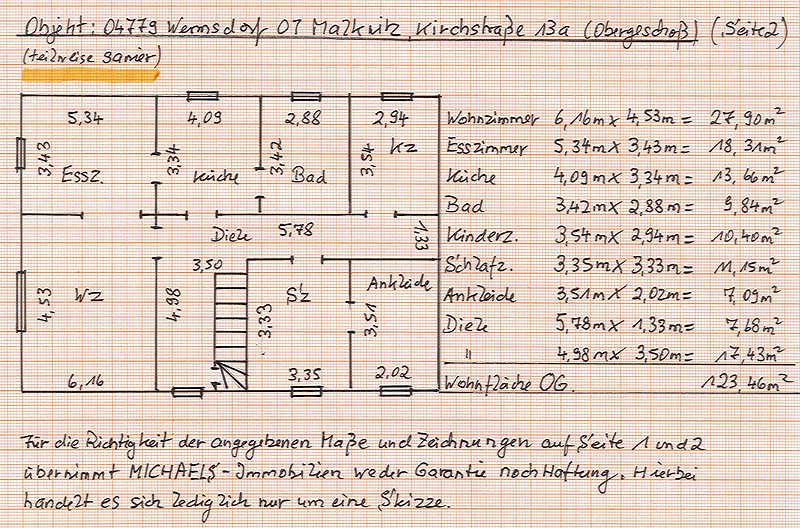 Objekt: 04779 Wermsdorf OT Malkwitz, Kirchstraße 13a (Obergeschoß) (Seite 2)
(teilweise saniert)
5,34
4,09
2,88
2,94
3,43
3,34
3,42
3,54
Essz.
Küche
Bad
Kz
Diele
5,78
1,33
3,50
Wz
4,53
4,98
Sz
3,33
Ankleide
3,51
6,16
3,35
2,02
Wohnzimmer 6,16m x 4,53m = 27,90m²
Esszimmer 5,34m x 3,43m = 18,31m²
Küche 4,09m x 3,34m = 13,66m²
Bad 3,42m x 2,88m = 9,84m²
Kinderz. 3,54m x 2,94m = 10,40m²
Schlafz. 3,35m x 3,33m = 11,15m²
Ankleide 3,51m x 2,02m = 7,09m²
Diele 5,78m x 1,33m = 7,68m²
" 4,98m x 3,50m = 17,43m²
Wohnfläche OG. 123,46m²
Für die Richtigkeit der angegebenen Maße und Zeichnungen auf Seite 1 und 2
übernimmt MICHAELS-Immobilien weder Garantie noch Haftung. Hierbei
handelt es sich lediglich nur um eine Skizze.